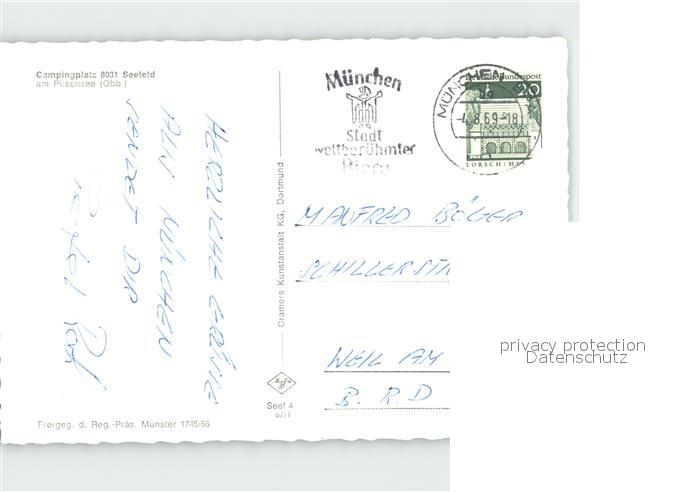 Campingplatz 8031 Seefeld
am Pilsensee (Obb.)
HERZLICHE GRÜSSE
AUS MÜNCHEN
SENDET DIR
Freigeg. d. Reg.-Präs. Münster 1745/66
Cramers Kunstanstalt KG, Dortmund
Seef 4
München
Stadt
weltberühmter
Biere
MÜNCHEN
-4.8.69-18
Deutsche Bundespost
20
LORSCH/HES
MANFRED BÖLGER
SCHILLERSTR
WEIL AM
B.R.D
privacy protection
Datenschutz